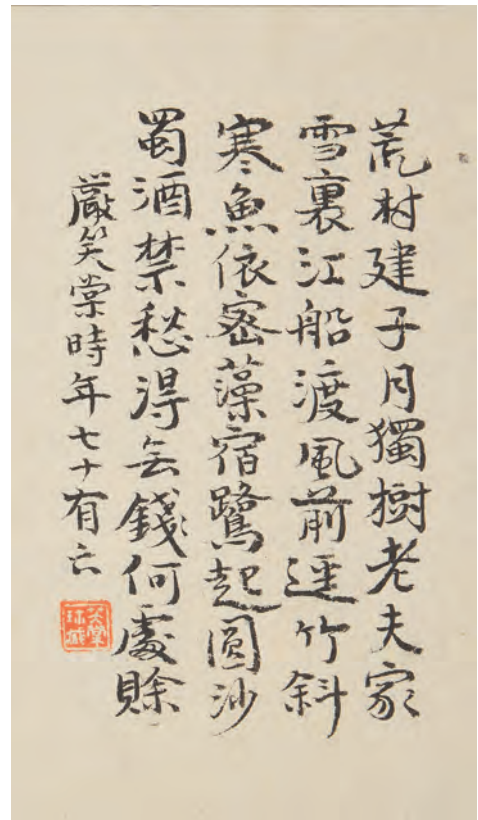 荒村建子月獨樹老夫家
雪裏江船渡風前逕竹斜
寒魚依密藻宿鷺起圓沙
蜀酒禁愁得无錢何處賖
嚴笑棠時年七十有六
笑棠